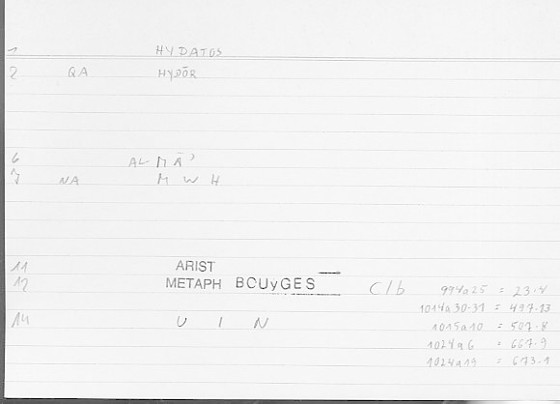 1 HYDATOS
2 QA HYDŌR
6 AL MĀ'
7 NA M W H
11 ARIST
12 METAPH BOUyGES C/b 994a25 = 23.4
1014a30-31 = 497.13
14 U I N 1015a10 = 507.8
1024a6 = 667.9
1024a19 = 673.1